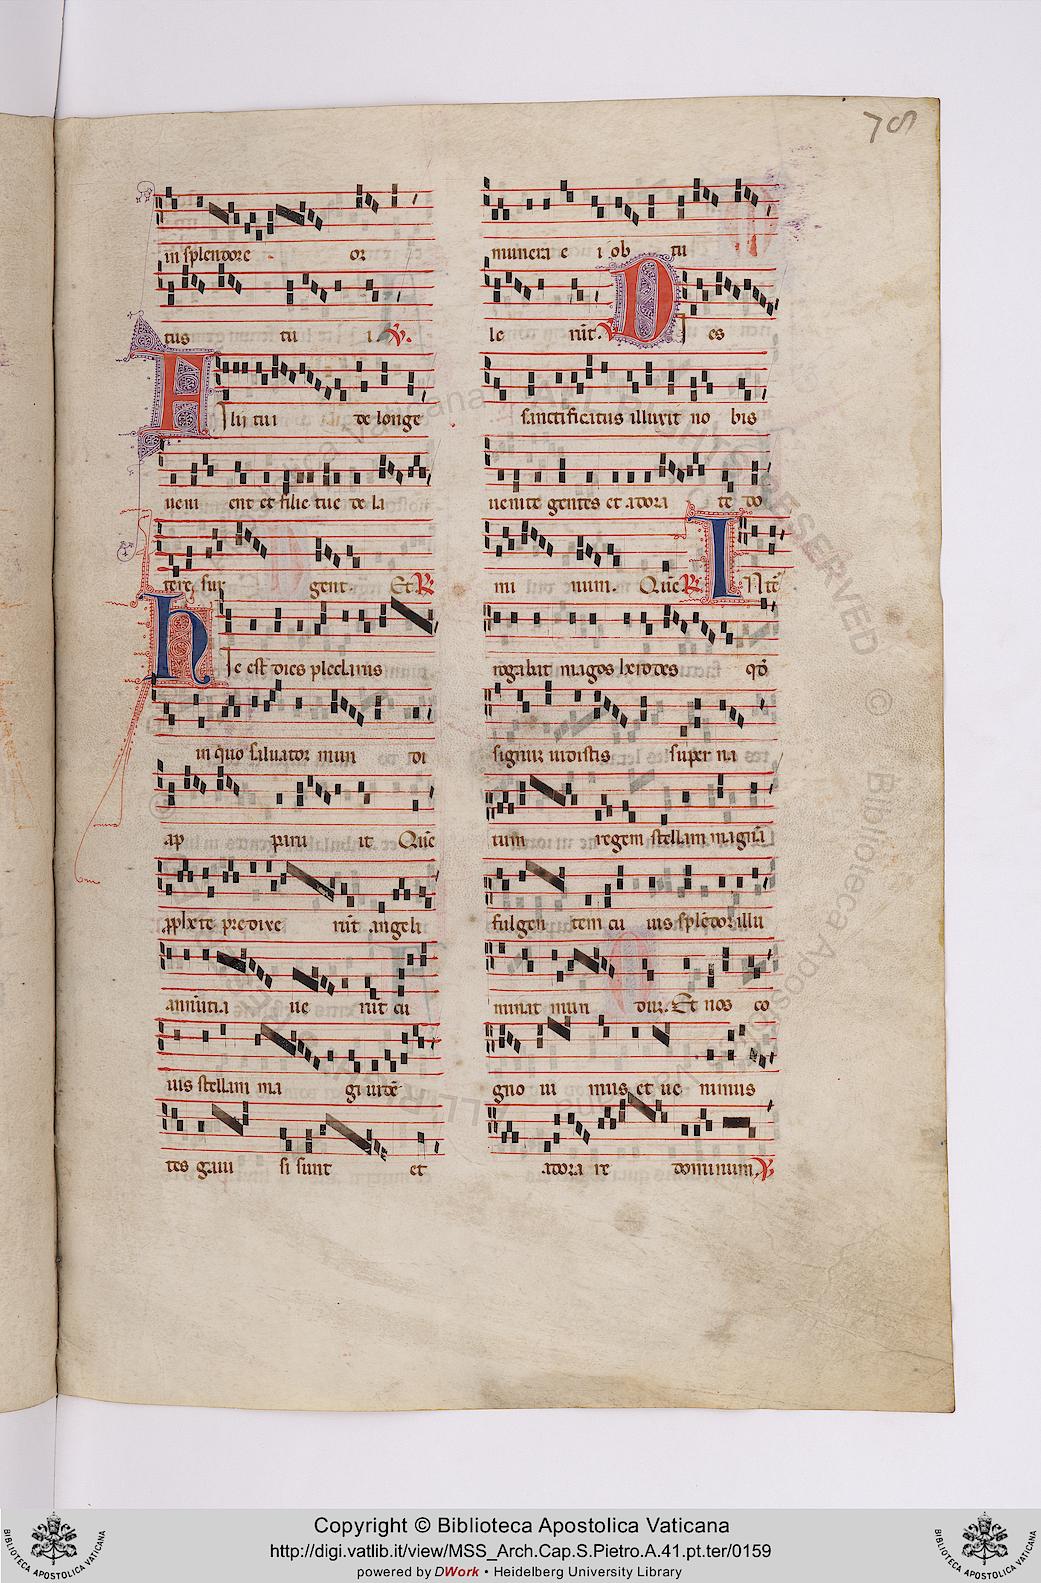 78
in splendore or
tus tu i ℣.
Filii tui de longe
veni ent et filie tue de la
tere sur gent. Et ℟
Hic est dies preclarus
in quo salvator mun di
ap paru it Quē
pphete predixe rūt angeli
annūtia ve rūt cu
ius stellam ma gi vidē
tes gavi si sunt et
munera e i ob tu
le rūt. ℣ Dies
sanctificatus illuxit no bis
venite gentes et adora te do
mi num. Quē ℟ Inter
rogabat magos herodes qđ
signum vidistis super na
tum regem stellam magnā
fulgen tem cu ius splēdor illu
minat mun dum. Et nos co
gno vi mus et ve nimus
adora re dominum ℣
Copyright © Biblioteca Apostolica Vaticana
http://digi.vatlib.it/view/MSS_Arch.Cap.S.Pietro.A.41.pt.ter/0159
powered by DWork • Heidelberg University Library
BIBLIOTECA APOSTOLICA VATICANA
BIBLIOTECA APOSTOLICA VATICANA